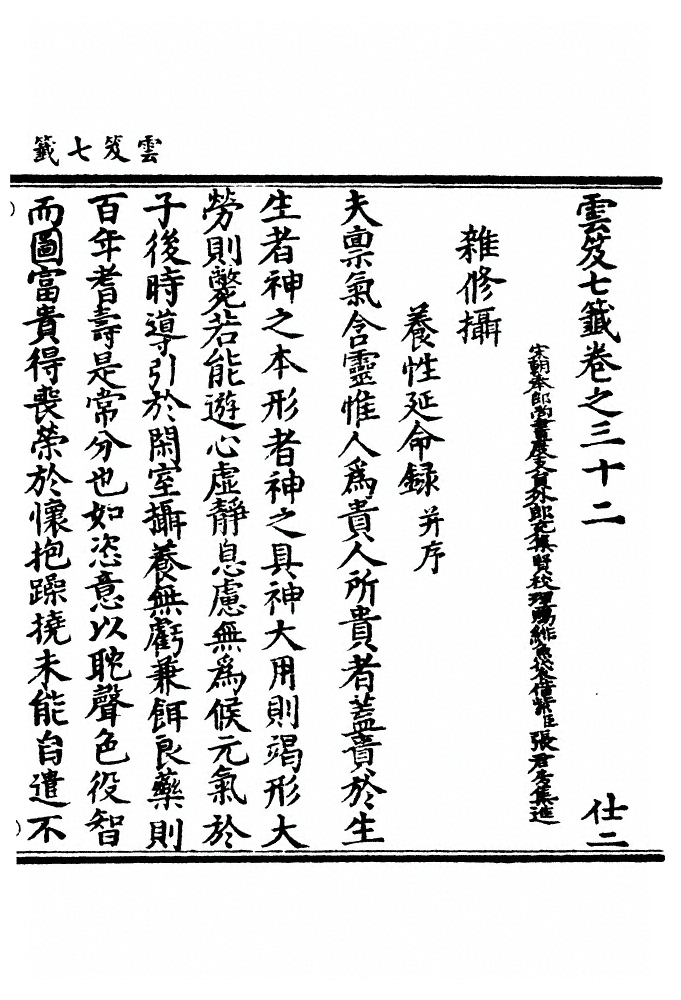 雲笈七籤
雲笈七籤卷之三十二 仕二
宋朝奉郎尚書度支員外郎充集賢校理賜緋魚袋借紫臣張君房集進
雜修攝
養性延命録 并序
夫禀氣含靈惟人爲貴人所貴者蓋貴於生
生者神之本形者神之具神大用則竭形大
勞則斃若能遊心虛靜息慮無爲候元氣於
子後時導引於閑室攝養無虧兼餌良藥則
百年耆壽是常分也如恣意以耽聲色役智
而圖富貴得喪榮於懷抱躁撓未能自遣不